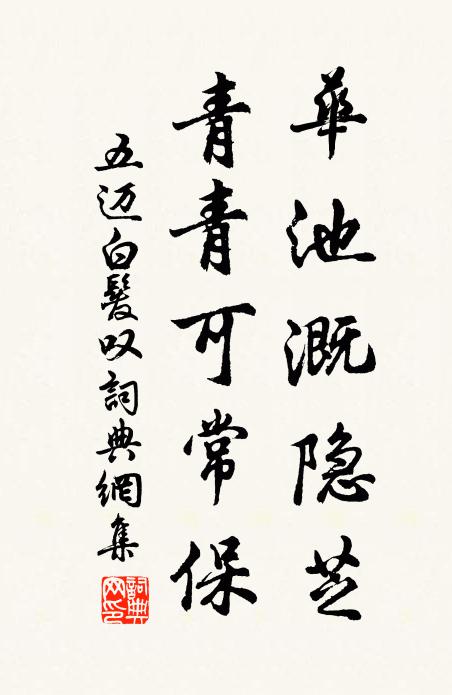 華池溉隐芝
青青可常保
五迈白髮叹詞典網集
詞典網印